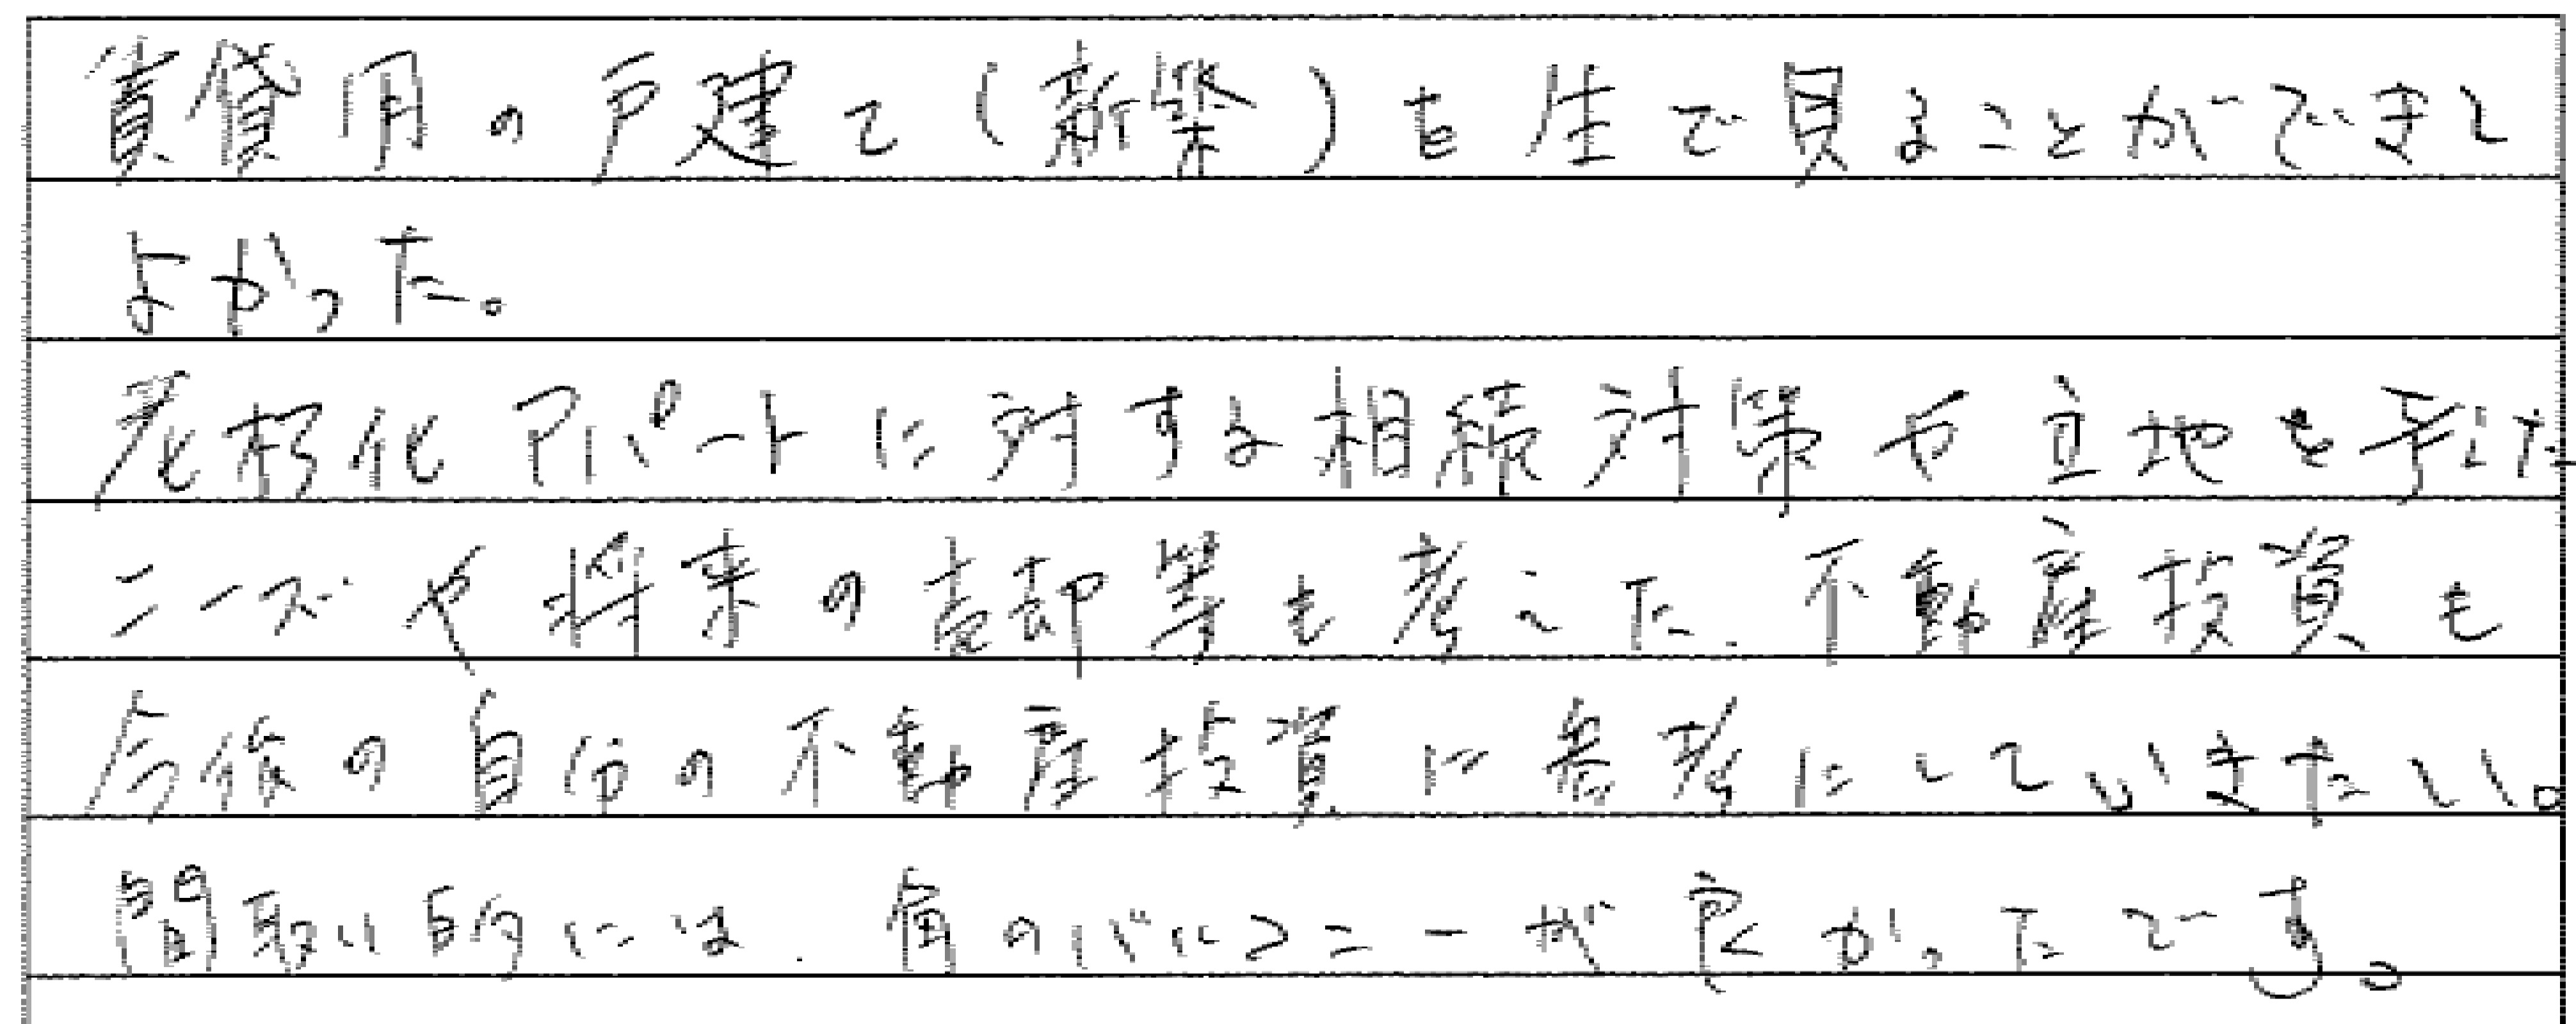 賃貸用の戸建て(新築)も生で見ることができまして
よかった。
老朽化アパートに対する相続対策や立地を予した
ニーズや将来の売却等も考こた、不動産投資も
今後の自分の不動産投資に参考にしていきたい。
間取り的には、角のバルコニーが良かったです。